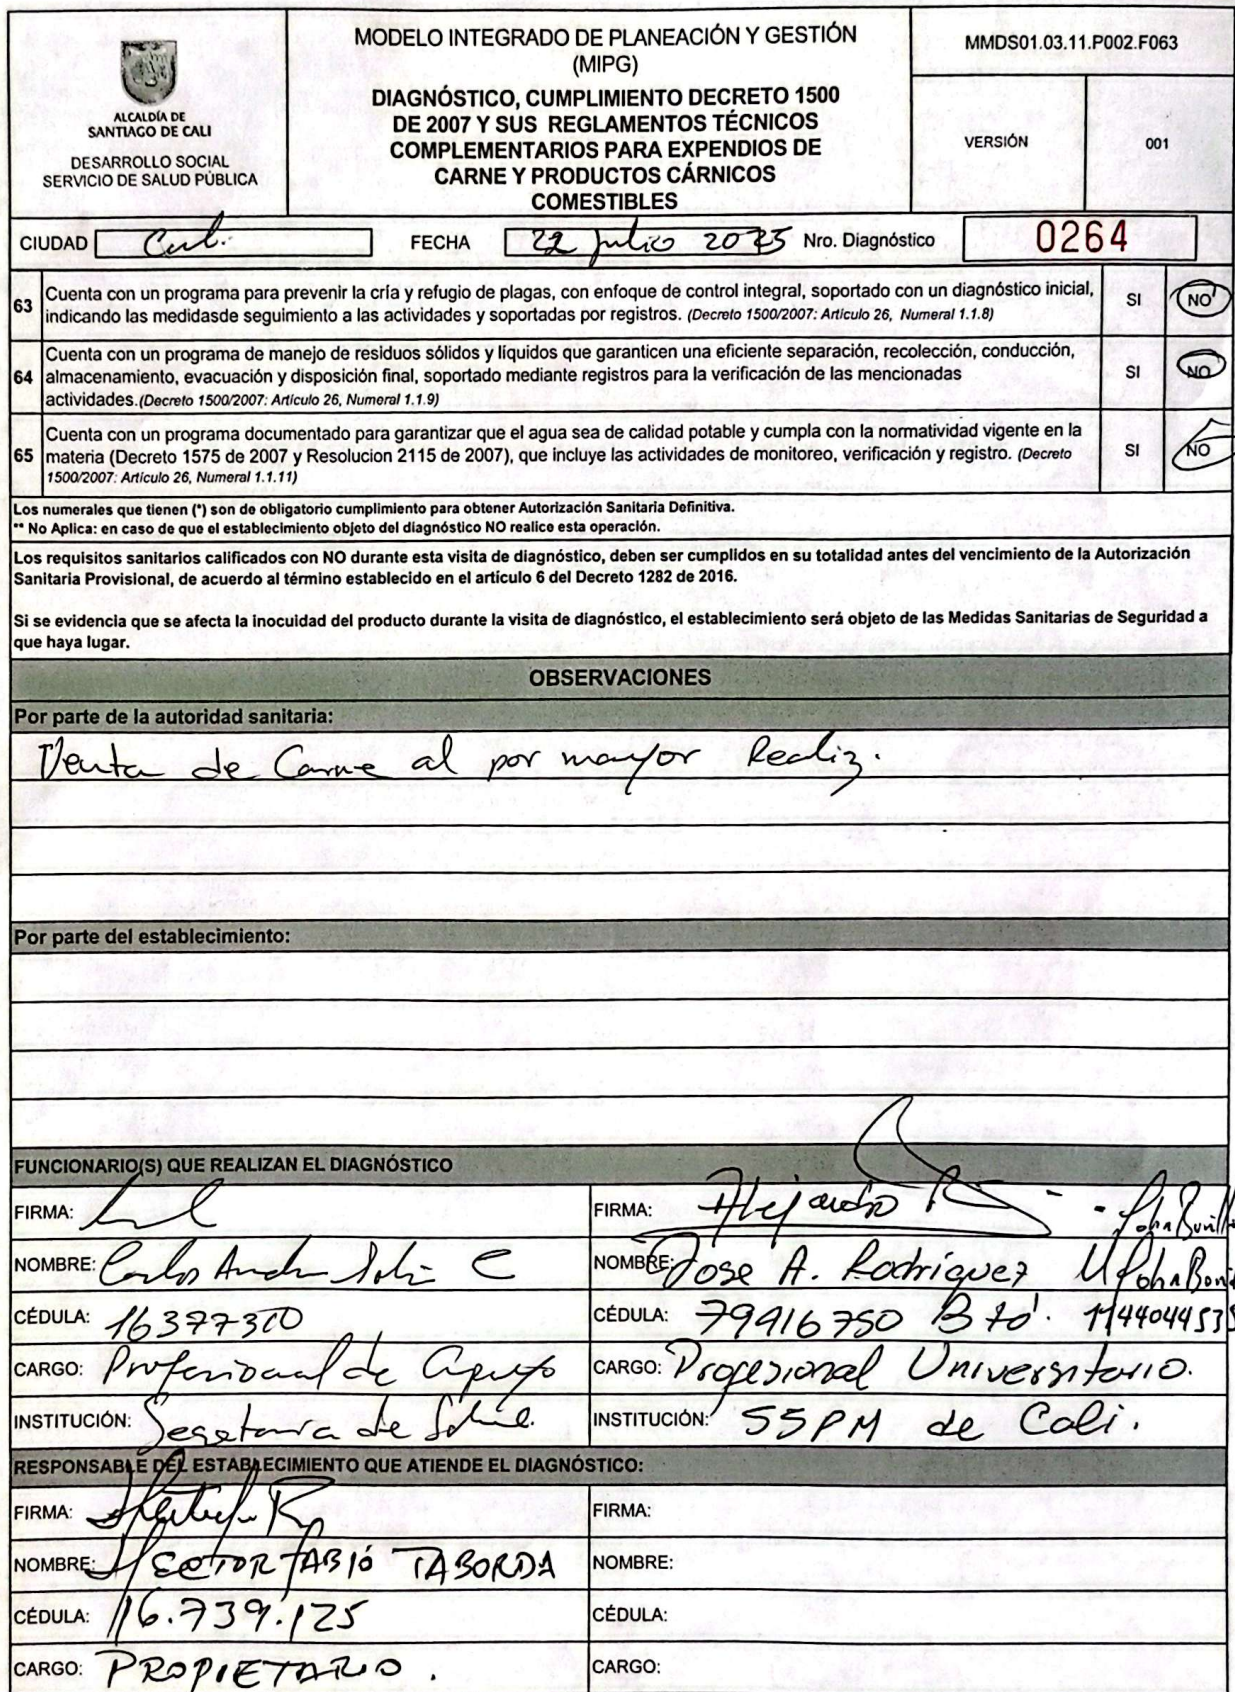 ALCALDÍA DE
SANTIAGO DE CALI
DESARROLLO SOCIAL
SERVICIO DE SALUD PÚBLICA
MODELO INTEGRADO DE PLANEACIÓN Y GESTIÓN
(MIPG)
DIAGNÓSTICO, CUMPLIMIENTO DECRETO 1500
DE 2007 Y SUS REGLAMENTOS TÉCNICOS
COMPLEMENTARIOS PARA EXPENDIOS DE
CARNE Y PRODUCTOS CÁRNICOS
COMESTIBLES
MMDS01.03.11.P002.F063
VERSIÓN 001
CIUDAD Cali. FECHA 22 julio 2025 Nro. Diagnóstico 0264
63 Cuenta con un programa para prevenir la cría y refugio de plagas, con enfoque de control integral, soportado con un diagnóstico inicial, SI NO
indicando las medidasde seguimiento a las actividades y soportadas por registros. (Decreto 1500/2007: Artículo 26, Numeral 1.1.8)
Cuenta con un programa de manejo de residuos sólidos y líquidos que garanticen una eficiente separación, recolección, conducción,
64 almacenamiento, evacuación y disposición final, soportado mediante registros para la verificación de las mencionadas SI NO
actividades.(Decreto 1500/2007: Artículo 26, Numeral 1.1.9)
Cuenta con un programa documentado para garantizar que el agua sea de calidad potable y cumpla con la normatividad vigente en la
65 materia (Decreto 1575 de 2007 y Resolucion 2115 de 2007), que incluye las actividades de monitoreo, verificación y registro. (Decreto SI NO
1500/2007: Artículo 26, Numeral 1.1.11)
Los numerales que tienen (*) son de obligatorio cumplimiento para obtener Autorización Sanitaria Definitiva.
** No Aplica: en caso de que el establecimiento objeto del diagnóstico NO realice esta operación.
Los requisitos sanitarios calificados con NO durante esta visita de diagnóstico, deben ser cumplidos en su totalidad antes del vencimiento de la Autorización
Sanitaria Provisional, de acuerdo al término establecido en el artículo 6 del Decreto 1282 de 2016.
Si se evidencia que se afecta la inocuidad del producto durante la visita de diagnóstico, el establecimiento será objeto de las Medidas Sanitarias de Seguridad a
que haya lugar.
OBSERVACIONES
Por parte de la autoridad sanitaria:
Venta de Carne al por mayor Realiz.
Por parte del establecimiento:
FUNCIONARIO(S) QUE REALIZAN EL DIAGNÓSTICO
FIRMA: FIRMA: Alejandro
NOMBRE: Carlos C NOMBRE: Jose A. Rodríguez M
CÉDULA: 16377300 CÉDULA: 79916750 Btó.
CARGO: Profesional de apoyo CARGO: Profesional Universitario.
INSTITUCIÓN: Secretaria de Salud. INSTITUCIÓN: SSPM de Cali.
RESPONSABLE DEL ESTABLECIMIENTO QUE ATIENDE EL DIAGNÓSTICO:
FIRMA: FIRMA:
NOMBRE: HECTOR FABIÓ TABORDA NOMBRE:
CÉDULA: 16.739.125 CÉDULA:
CARGO: PROPIETARIO. CARGO: